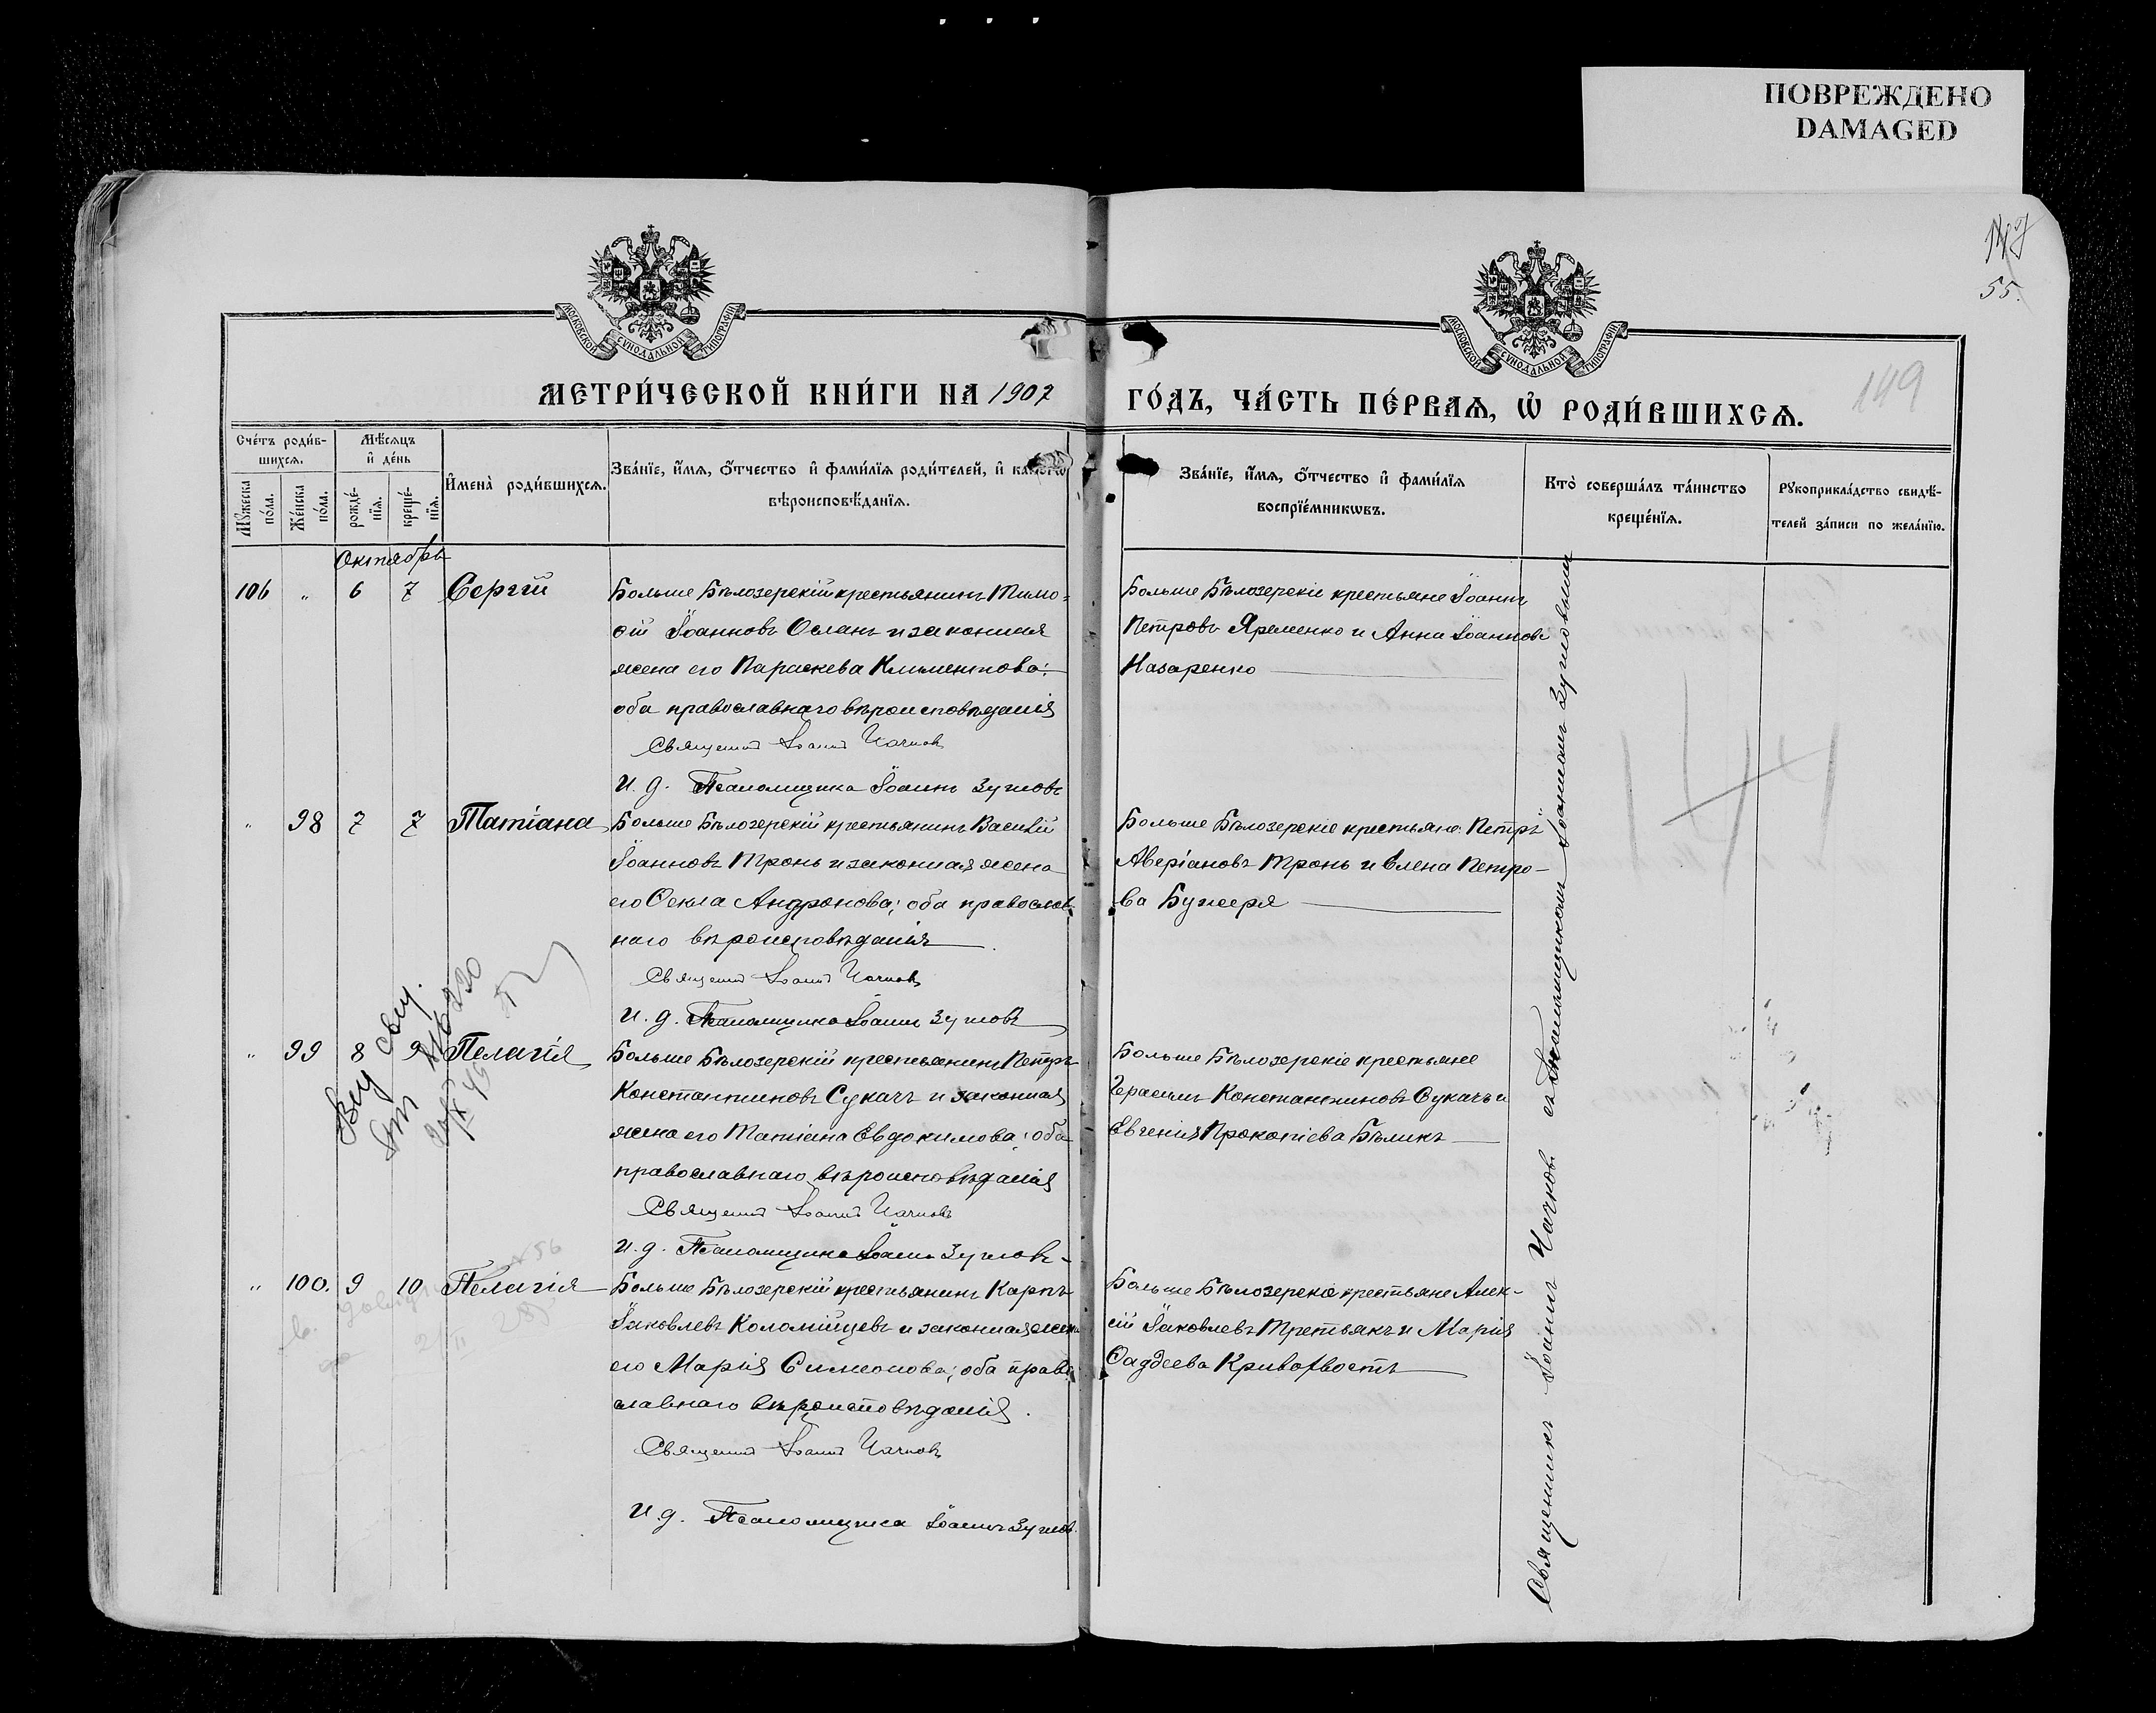 ПОВРЕЖДЕНО
DAMAGED
55.
149
МОСКОВСКОЙ СѴНОДАЛЬНОЙ ТИПОГРАФІИ
МОСКОВСКОЙ СѴНОДАЛЬНОЙ ТИПОГРАФІИ
МЕТРИ́ЧЕСКОЙ КНИ́ГИ НА 1907
ГО́ДЪ, ЧА́СТЬ ПЕ́РВАЯ, Ѡ РОДИ́ВШИХСЯ.
Сче́тъ роди́в-
шихся.
Мѣ́сяцъ
и де́нь
Мꙋ́жеска по́ла.
Же́нска по́ла.
рожде́-
нїя.
креще́-
нїя.
Имена̀ роди́вшихся.
Зва́нїе, и́мя, о́тчество и фами́лїя роди́телей, и како́гѡ
вѣроисповѣ́данїя.
Зва́нїе, и́мя, о́тчество и фами́лїя
воспрїе́мникѡвъ.
Кто̀ соверша́лъ та́инство
креще́нїя.
Рꙋкоприкла́дство свидѣ́-
телей за́писи по жела́нїю.
Октябрь
106 „ 6 7 Сергій
Больше Бѣлозерскій крестьянинъ Тимо-
ѳій Іоанновъ Осланъ и законная
жена его Параскева Климентова;
оба православнаго вѣроисповѣданія
Священникъ Іоаннъ Чачковъ
И. д. Псаломщика Іоаннъ Зугловъ
Больше Бѣлозерскіе крестьяне Іоаннъ
Петровъ Яременко и Анна Іоаннова
Назаренко
„ 98 7 7 Татіана
Больше Бѣлозерскій крестьянинъ Василій
Іоанновъ Тронь и законная жена
его Ѳекла Андронова; оба православ-
наго вѣроисповѣданія
Священникъ Іоаннъ Чачковъ
И. д. Псаломщика Іоаннъ Зугловъ
Больше Бѣлозерскіе крестьяне: Петръ
Аверіановъ Тронь и Елена Петро-
ва
„ 99 8 9 Пелагія
Больше Бѣлозерскій крестьянинъ Петръ
Константиновъ Сукачъ и законная
жена его Татіана Евдокимова; оба
православнаго вѣроисповѣданія
Священникъ Іоаннъ Чачковъ
И. д. Псаломщика Іоаннъ Зугловъ
Больше Бѣлозерскіе крестьяне
Герасимъ Константиновъ Сукачъ и
Евгенія Прокопіева Бѣликъ
„ 100. 9 10 Пелагія
Больше Бѣлозерскій крестьянинъ Карпъ
Іаковлевъ Коломійцевъ и законная жена
его Марія Симеонова; оба право-
славнаго вѣроисповѣданія.
Священникъ Іоаннъ Чачковъ
И. д. Псаломщика Іоаннъ Зугловъ
Больше Бѣлозерскіе крестьяне Алек-
сій Іаковлевъ Третьякъ и Марія
Ѳаддеева Кривохвостъ
Священникъ Іоаннъ Чачковъ съ псаломщикомъ Іоанномъ Зугловымъ